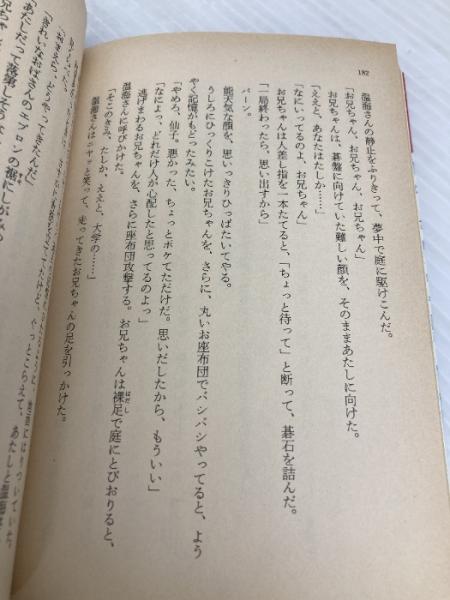 182
温海さんの静止をふりきって、夢中で庭に駆けこんだ。
「お兄ちゃん、お兄ちゃん」
お兄ちゃんは、碁盤に向けていた難しい顔を、そのままあたしに向けた。
「ええと、あなたはたしか……」
「なにいってるのよ、お兄ちゃん」
お兄ちゃんは人差し指を一本たてると、「ちょっと待って」と断って、碁石を詰んだ。
「一局終わったら、思い出すから」
パーン。
能天気な顔を、思いっきりひっぱたいてやる。
うしろにひっくりこけたお兄ちゃんを、さらに、丸いお座布団でバシバシやってると、よう
やく記憶がもどったみたい。
「やめろ、仙子。悪かった、ちょっとボケてただけだ。思いだしたから、もういい」
「なによっ、どれだけ人が心配したと思ってるのよっ」
逃げまわるお兄ちゃんを、さらに座布団攻撃する。お兄ちゃんは裸足で庭にとびおりると、
はだし
温海さんに呼びかけた。
「そこのきみ、たしか、ええと、大学の……」
温海さんはニヤッと笑って、走ってきたお兄ちゃんの足を引っかけた。
「きれいなおばさんのエプロンの裾にしがみつ
「あたしだって落第しそうな